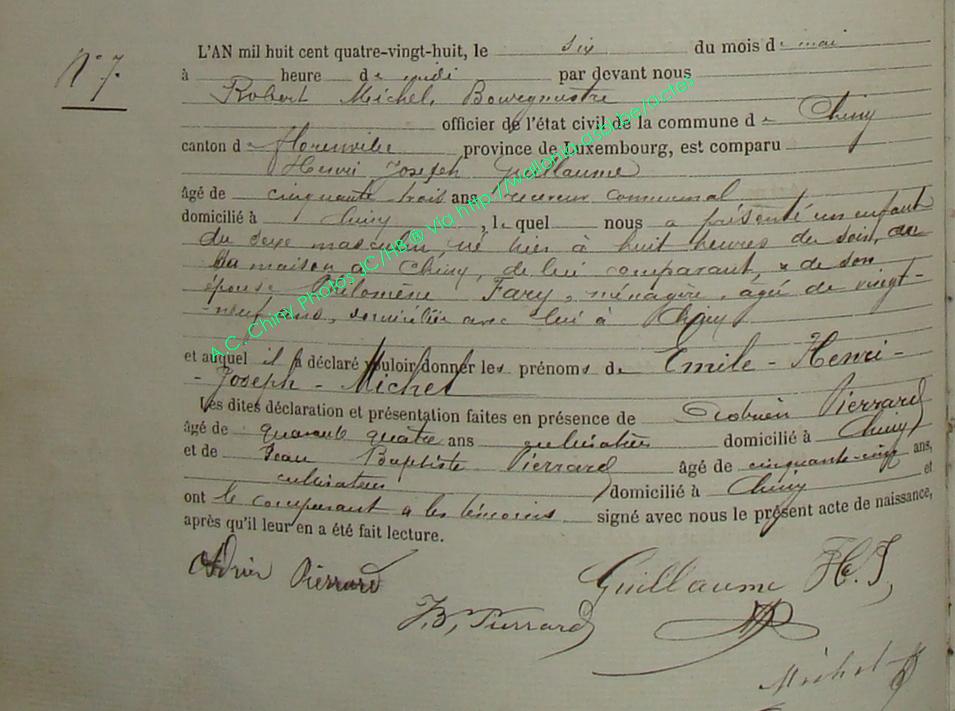 N° 7.
L'AN mil huit cent quatre-vingt-huit, le six du mois de mai
à heure de midi par devant nous
Robert Michel, Bourgmestre
officier de l'état civil de la commune de Chiny
canton de Florenville province de Luxembourg, est comparu
Henri Joseph Guillaume
âgé de cinquante trois ans receveur communal
domicilié à Chiny, lequel nous a présenté un enfant
du sexe masculin, né hier à huit heures du soir, en
sa maison à Chiny, de lui comparant, & de son
épouse Philomène Fary, ménagère, âgée de vingt-
-neuf ans, domiciliée avec lui à Chiny
et auquel il a déclaré vouloir donner les prénoms de Emile - Henri -
- Joseph - Michel
Les dites déclaration et présentation faites en présence de Adrien Pierrard
âgé de quarante quatre ans cultivateur domicilié à Chiny
et de Jean Baptiste Pierrard âgé de cinquante-cinq ans,
cultivateur domicilié à Chiny et
ont le comparant & les témoins signé avec nous le présent acte de naissance,
après qu'il leur en a été fait lecture.
Adrien Pierrard
Guillaume H. J.
J. B. Pierrard
Michel R
A.C. Chiny Photos JC/HB ® via http://wallonia.asbl.be/actes